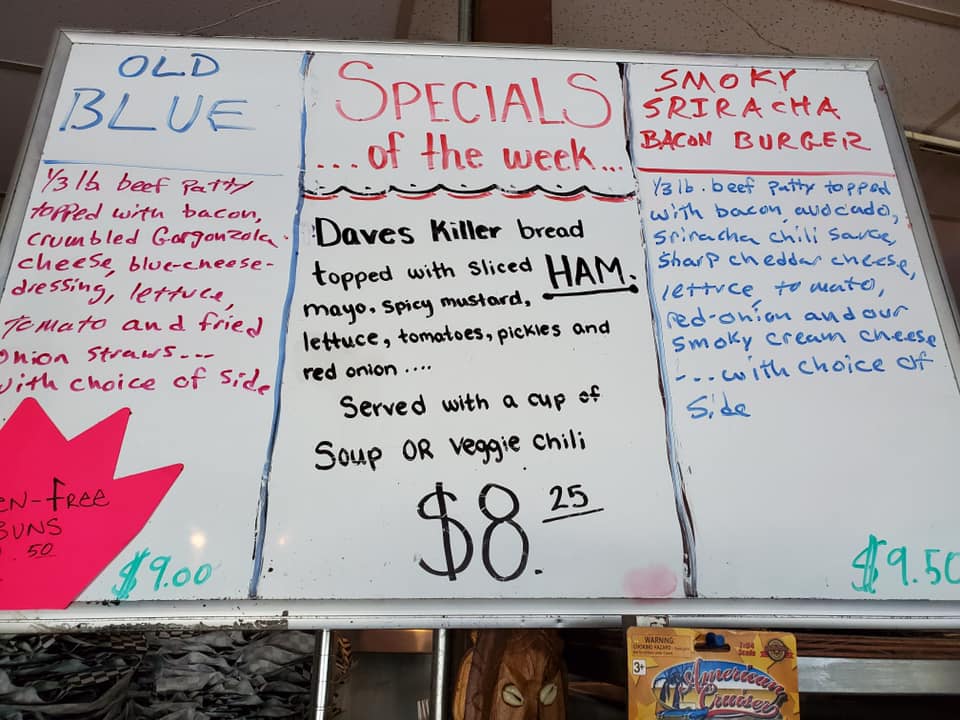 OLD
BLUE
1/3 lb beef Patty
topped with bacon,
crumbled Gorgonzola
cheese, blue-cheese-
dressing, lettuce,
Tomato and fried
onion straws...
with choice of side
EN-FREE
BUNS
.50
$9.00
SPECIALS
...of the week...
Daves Killer bread
topped with sliced HAM.
mayo, spicy mustard,
lettuce, tomatoes, pickles and
red onion ....
Served with a cup of
Soup OR Veggie chili
$8.25
SMOKY
SRIRACHA
BACON BURGER
1/3 lb. beef patty topped
with bacon, avocado,
sriracha chili sauce,
sharp cheddar cheese,
lettuce, tomato,
red-onion and our
smoky cream cheese
....with choice of
side
$9.50
WARNING:
CHOKING HAZARD
3+
1:64
Scale
American
Cruiser